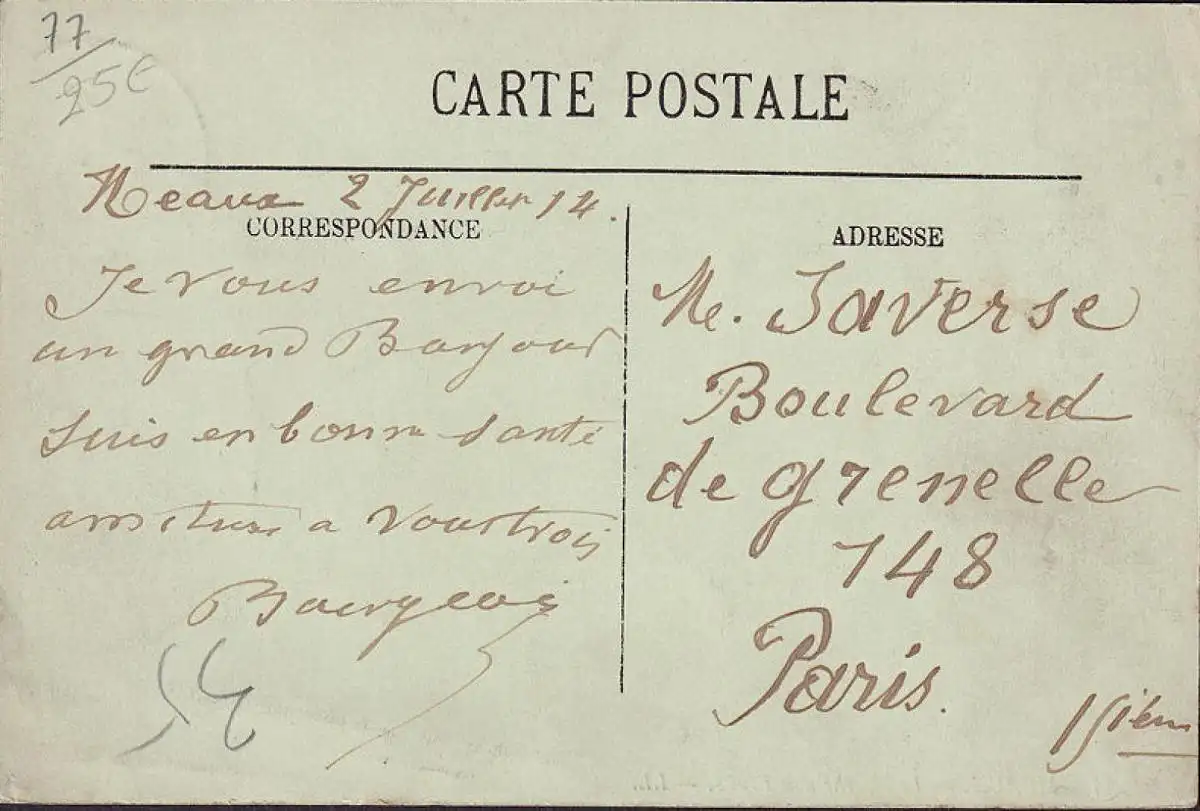 77
25€
CARTE POSTALE
Meaux 2 Juillet 14.
CORRESPONDANCE
Je vous envoi
un grand Bonjour
suis en bonne santé
amitiés a vous trois
Bourgeois
ADRESSE
Me. Javerse
Boulevard
de grenelle
148
Paris.
15ièm